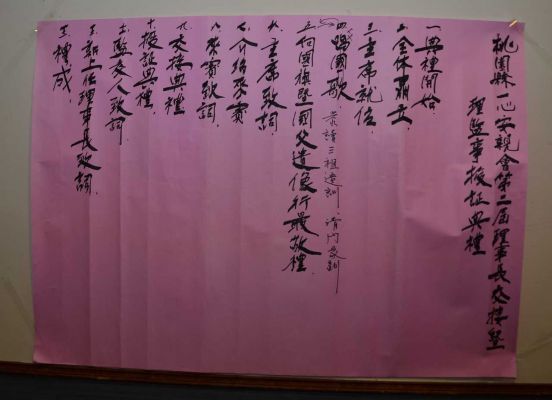 桃園縣一心安親會第三屆理事長交接暨
理監事授証典禮
一典禮開始
二全体肅立
三主席就位
四唱國歌
恭讀三祖遺訓
五向國旗暨國父遺像行最敬禮
六主席致詞
七介紹來賓
八來賓致詞
九交接典禮
十授証典禮
十一監交人致詞
十二新上任理事長致詞
十三禮成